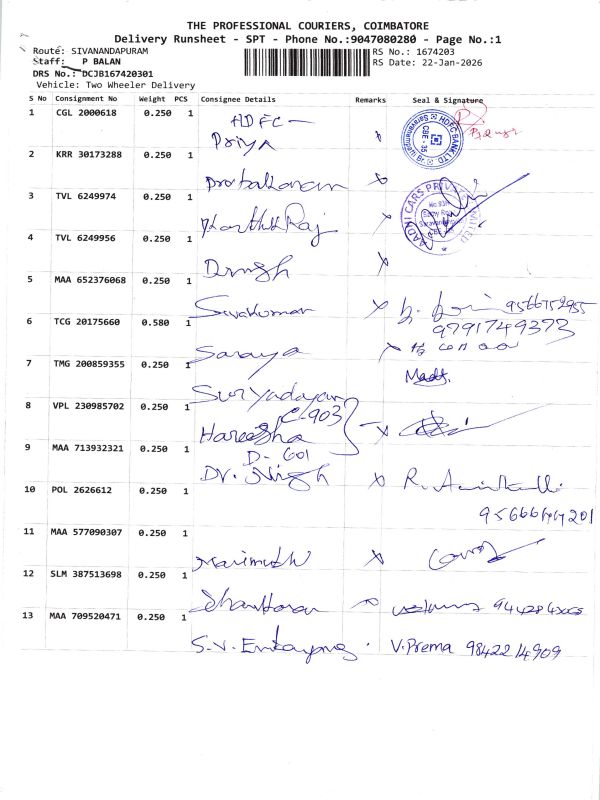 THE PROFESSIONAL COURIERS, COIMBATORE
Delivery Runsheet - SPT - Phone No.:9047080280 - Page No.:1
Route: SIVANANDAPURAM
RS No.: 1674203
Staff: P BALAN
RS Date: 22-Jan-2026
DRS No.: DCJB167420301
Vehicle: Two Wheeler Delivery
S No Consignment No Weight PCS Consignee Details Remarks Seal & Signature
1 CGL 2000618 0.250 1 HDFC
Priya
HDFC BANK LTD.
CBE - 35
2 KRR 30173288 0.250 1
Prabakaran
3 TVL 6249974 0.250 1
Karthik Raj
AADHI CARS PRIVATE LIMITED
4 TVL 6249956 0.250 1
Dinesh
5 MAA 652376068 0.250 1
Sivakumar 9566752955
9791749373
6 TCG 20175660 0.580 1
Saraya
7 TMG 200859355 0.250 1
Suryadayan
8 VPL 230985702 0.250 1
C-903
Hareesha
9 MAA 713932321 0.250 1
D-601
Dr. Singh
10 POL 2626612 0.250 1
11 MAA 577090307 0.250 1
Marimuth
12 SLM 387513698 0.250 1
13 MAA 709520471 0.250 1
S.V. V.Prema 9842214909